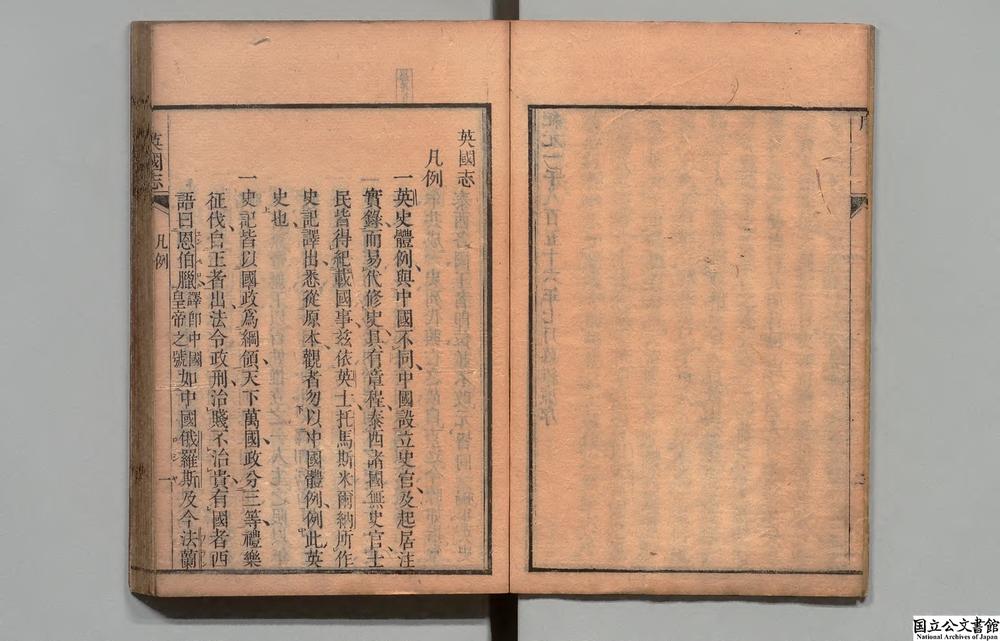 英國志
凡例
一英史體例與中國不同中國設立史官及起居注
實錄而易代修史具有章程泰西諸國無史官士
民皆得紀載國事玆依英士托馬斯米爾納所作
史記譯出悉從原本觀者勿以中國體例例此英
史也
一史記皆以國政爲綱領天下萬國政分三等禮樂
征伐自王者出法令政刑治賤不治貴有國者西
語曰恩伯臘譯卽中國皇帝之號如中國俄羅斯及今法蘭
英國志
凡例
一
国立公文書館
National Archives of Japan